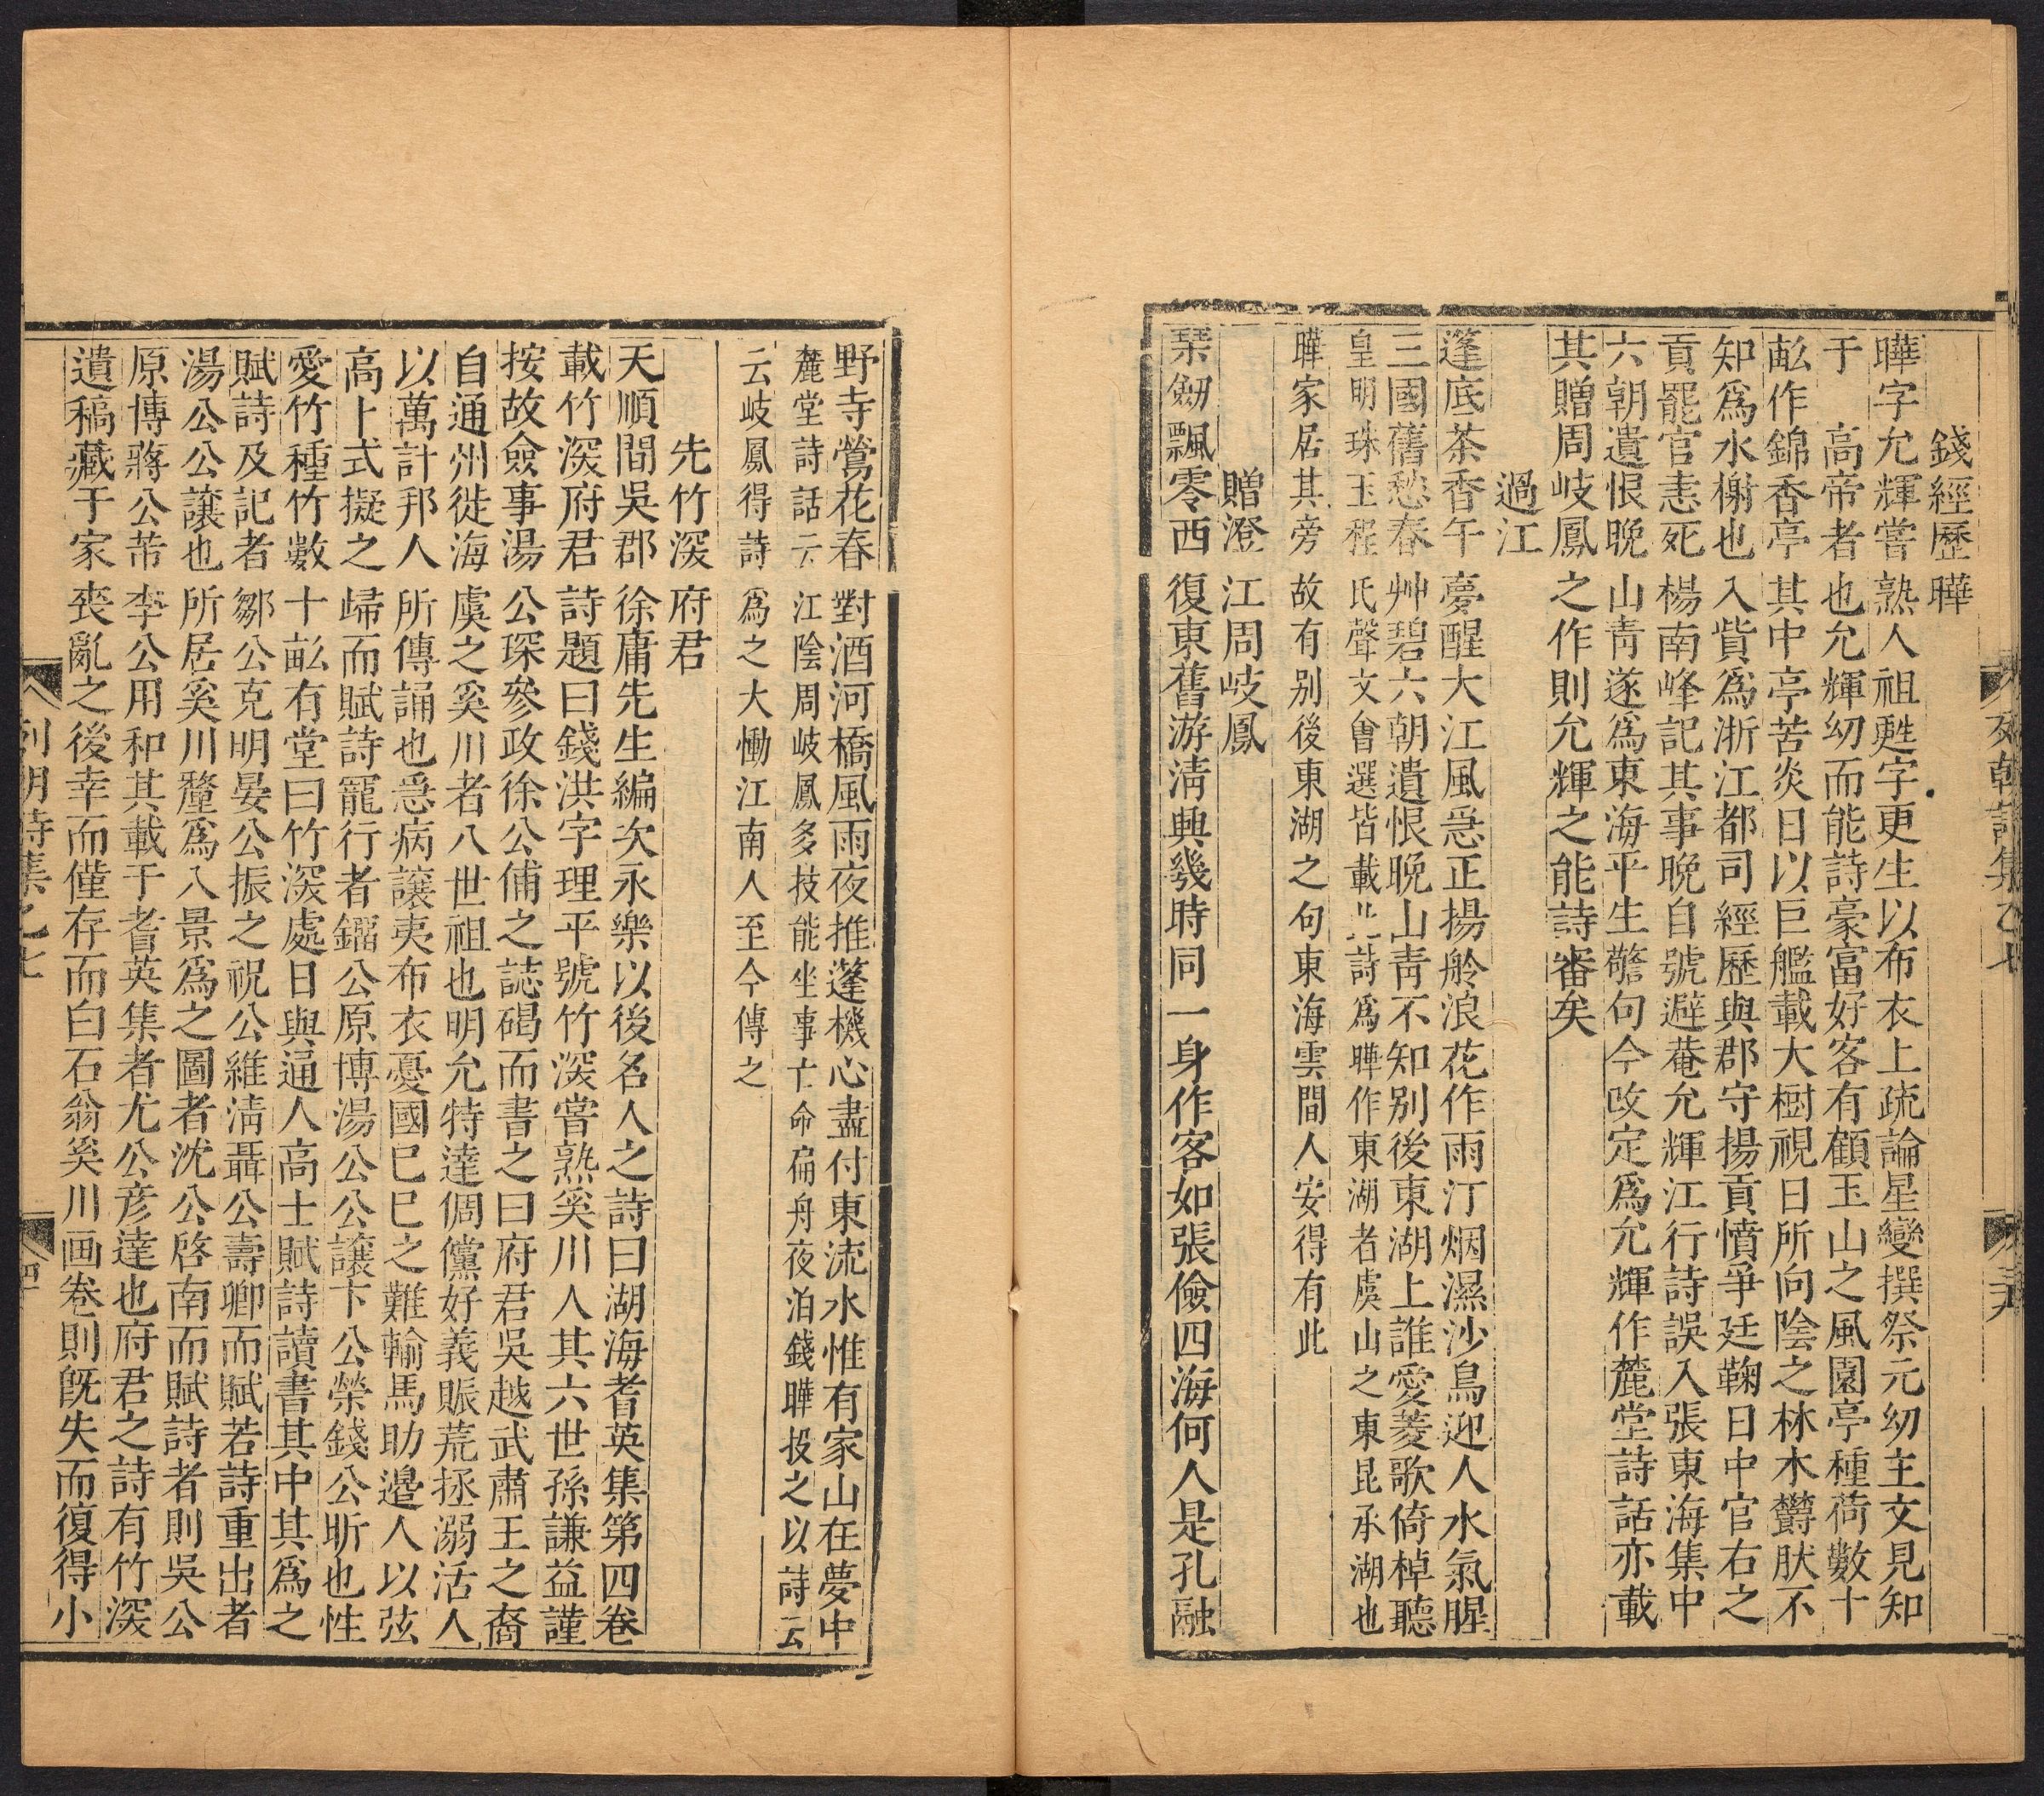 錢經歷曄
曄字允輝嘗熟人祖甦字更生以布衣上疏論星變撰祭元幼主文見知
于　高帝者也允輝幼而能詩豪富好客有顧玉山之風園亭種荷數十
畝作錦香亭其中亭苦炎日以巨艦載大樹視日所向陰之林木欝肰不
知爲水榭也入貲爲浙江都司經歷與郡守揚貢憤爭廷鞠日中官右之
貢罷官恚死楊南峰記其事晚自號避菴允輝江行詩誤入張東海集中
六朝遺恨晚山靑遂爲東海平生警句今攺定爲允輝作麓堂詩話亦載
其贈周岐鳳之作則允輝之能詩審矣
過江
蓬底茶香午夢醒大江風急正揚舲浪花作雨汀烟濕沙鳥迎人水氣腥
三國舊愁春艸碧六朝遺恨晚山靑不知别後東湖上誰愛菱歌倚棹聽
皇明珠玉程氏聲文會選皆載此詩爲曄作東湖者虞山之東昆承湖也
曄家居其旁故有别後東湖之句東海雲間人安得有此
贈澄江周岐鳳
琹劒飄零西復東舊游淸興幾時同一身作客如張儉四海何人是孔融
野寺鶯花春對酒河橋風雨夜推蓬機心盡付東流水惟有家山在夢中
麓堂詩話云江陰周岐鳳多技能坐事亡命扁舟夜泊錢曄投之以詩云
云岐鳳得詩爲之大慟江南人至今傳之
先竹深府君
天順間吳郡徐庸先生編次永樂以後名人之詩曰湖海耆英集第四卷
載竹深府君詩題曰錢洪字理平號竹深嘗熟奚川人其六世孫謙益謹
按故僉事湯公琛參政徐公備之誌碣而書之曰府君吳越武肅王之裔
自通州徙海虞之奚川者八世祖也明允特達倜儻好義賑荒拯溺活人
以萬計邦人所傳誦也急病讓夷布衣憂國巳巳之難輸馬助邉人以弦
高上式擬之歸而賦詩寵行者鎦公原博湯公公讓卞公榮錢公昕也性
愛竹種竹數十畝有堂曰竹深處日與逼人高士賦詩讀書其中其爲之
賦詩及記者鄒公克明晏公振之祝公維淸聶公壽卿而賦若詩重出者
湯公公讓也所居奚川釐爲八景爲之圖者沈公啓南而賦詩者則吳公
原博蔣公芾李公用和其載于耆英集者尤公彥達也府君之詩有竹深
遺稿藏于家丧亂之後幸而僅存而白石翁奚川画卷則旣失而復得小
列朝詩集乙七